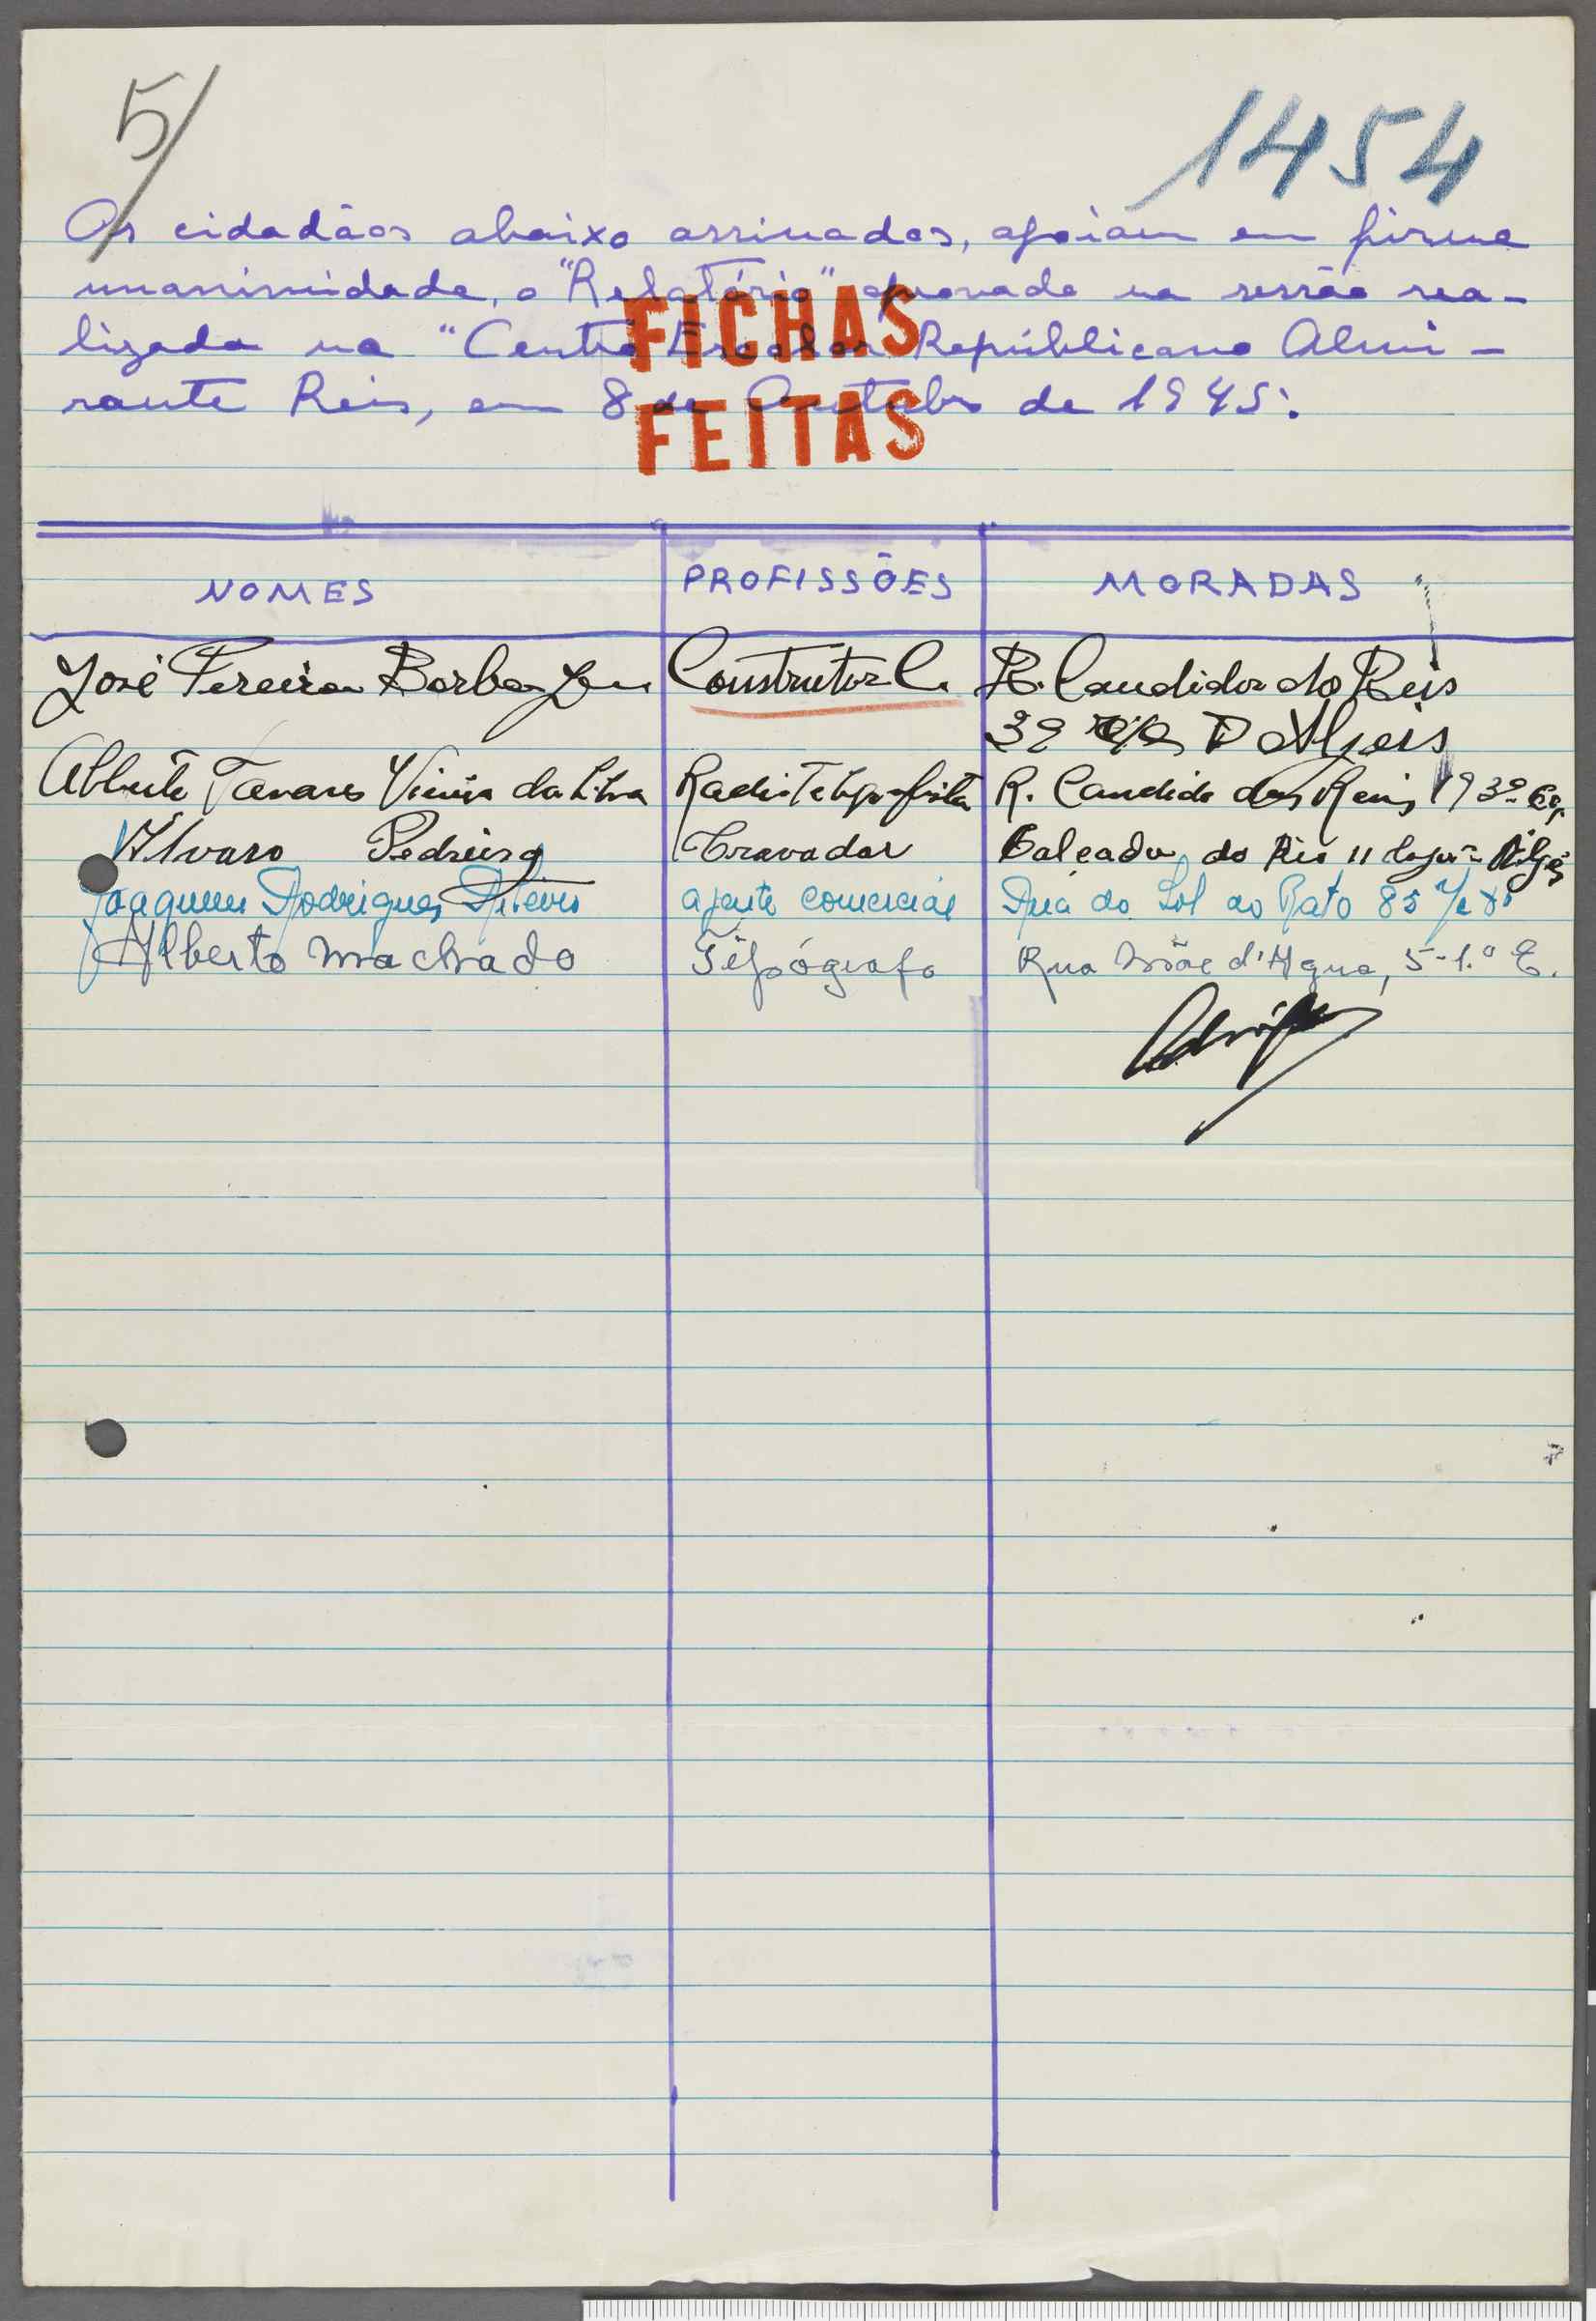 5/
1454
Os cidadãos abaixo assinados, apoiam em firme
unanimidade, o "Relatório" aprovado na sessão rea-
lizada na "Centro Escolar Repúblicano Almi-
rante Reis, em 8 de Outubro de 1945:
FICHAS
FEITAS
NOMES PROFISSÕES MORADAS
José Pereira Barbosa Construtor C. R. Candido do Reis
32 D Algeis
Alberto Tavares Vieira da Silva Radiotelegrafista R. Candido dos Reis 19 3º Esq.
Alvaro Pedreira Cravador Calçada do Rio 11 Algés
Joaquim Rodrigues Ribeiro agente comercial Rua do Sol ao Rato 85
Alberto Machado Tipógrafo Rua Mãe d'Agua, 5-1.º E.